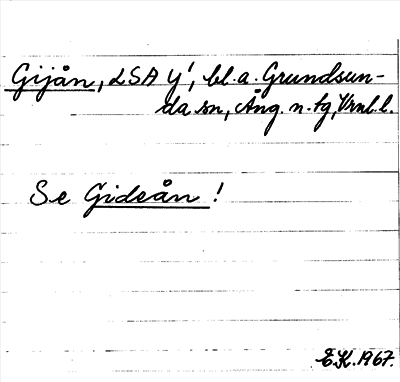 Gijån, LSA y', bl.a. Grundsun-
da sn, Ång. n. tg, Vrnl. l.
Se Gideån!
E.K. 1967.